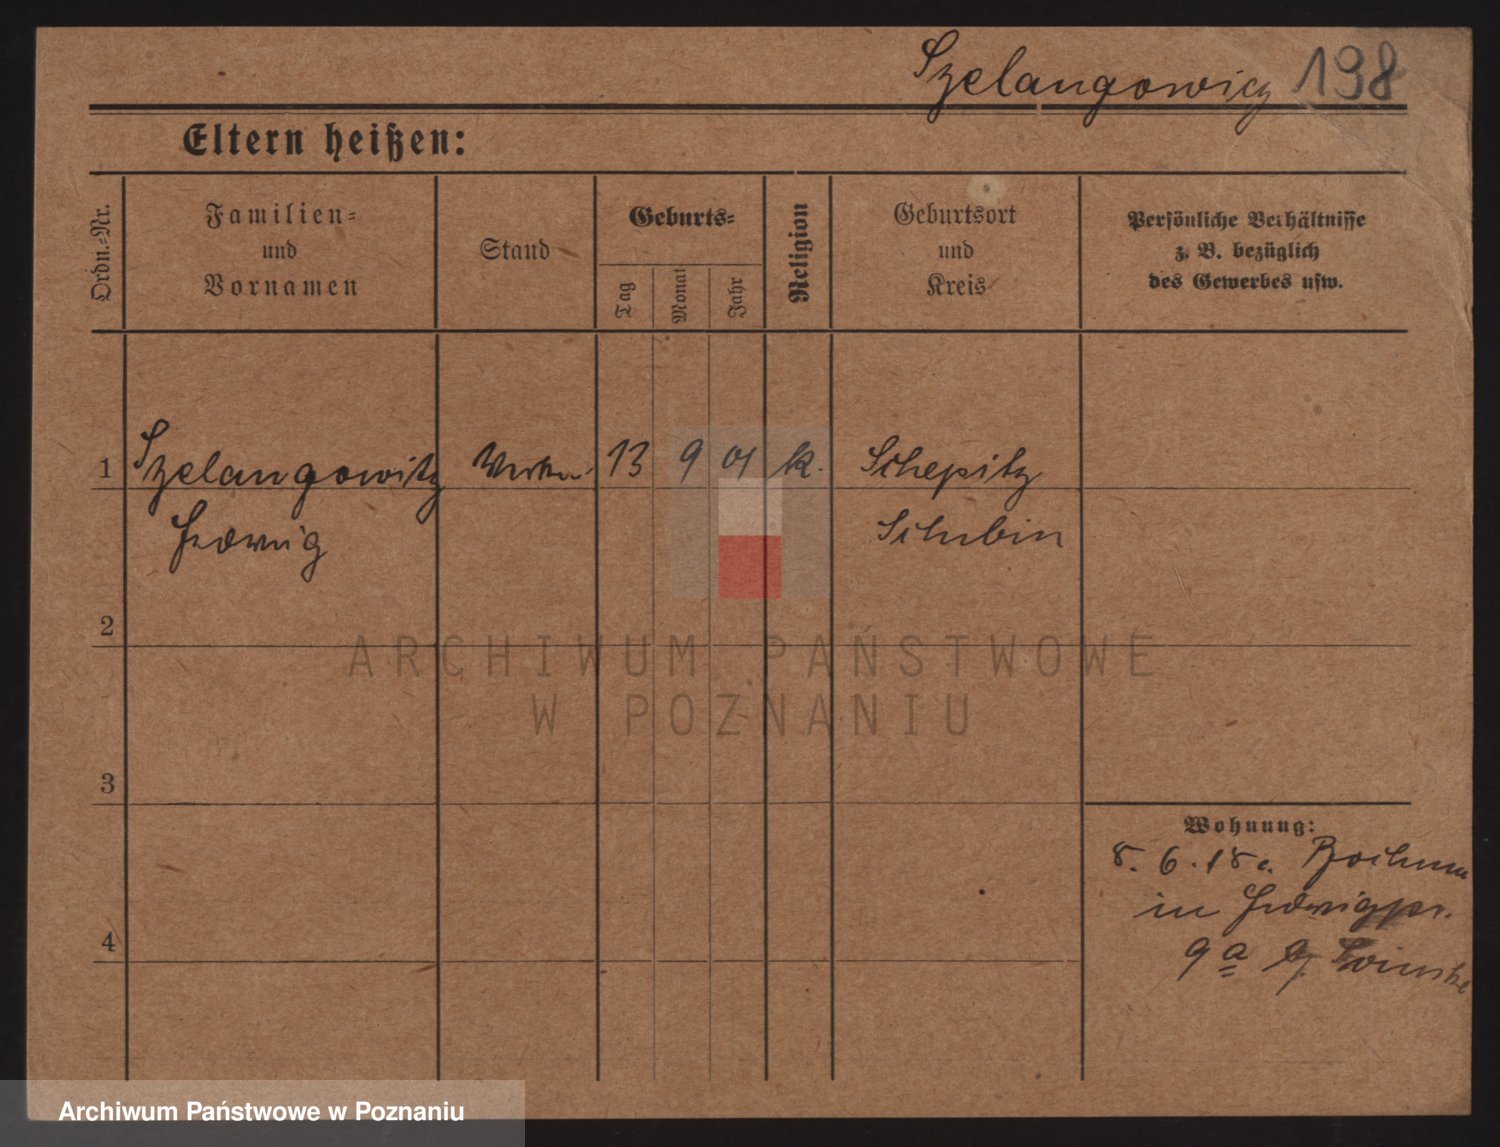 Szelangowicz 198
Eltern heißen:
Ordn.=Nr.
Familien=
und
Vornamen
Stand
Geburts=
Tag
Monat
Jahr
Religion
Geburtsort
und
Kreis
Persönliche Verhältnisse
z. B. bezüglich
des Gewerbes usw.
1 Szelangowitz 13 9 01 k. Schepitz
Hedwig Schubin
2
3
4
Wohnung:
8. 6. 18 Bochum
in Hedwigstr.
9a
ARCHIWUM PAŃSTWOWE
W POZNANIU
Archiwum Państwowe w Poznaniu